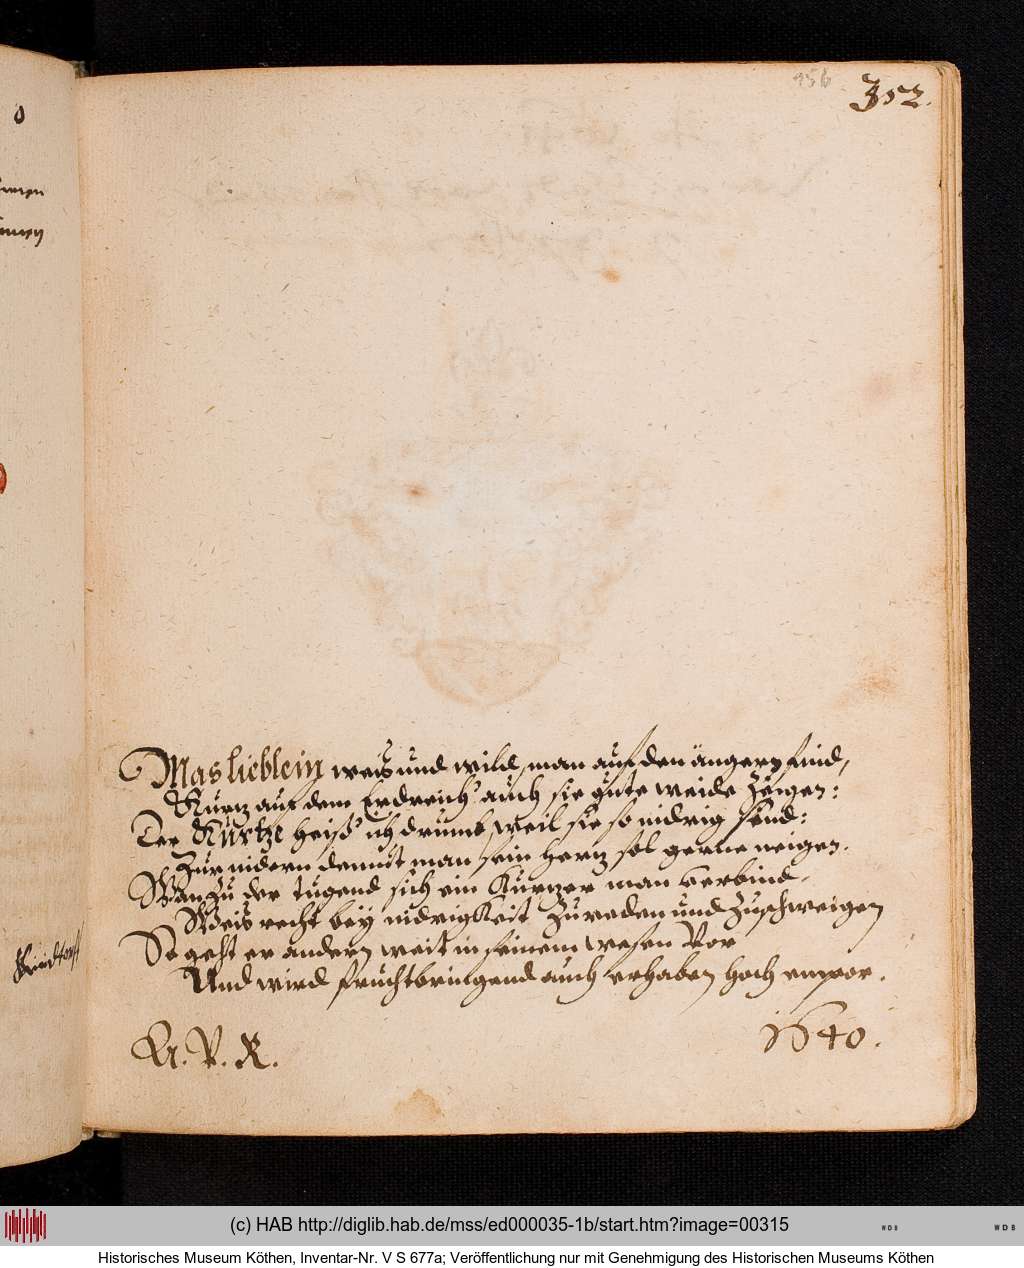 356
352.
Maslieblein weis und wild, man auf den ängern find,
Kurtz auf dem Erdreich' auch sie gute weide zeigen:
Der Kurtze heiß' ich drumb, weil sie so nidrig sind:
Zur nidern demut man sein hertz sol gerne neigen.
Wan zu der tugend sich ein Kurtzer man verbind,
Weis recht bey nidrigkeit zu reden und zu schweigen
So geht er andern weit in seinem wesen vor
Und wird fruchtbringend auch erhaben hoch empoor.
V. R.
1640.
(c) HAB http://diglib.hab.de/mss/ed000035-1b/start.htm?image=00315
WDB
WDB
Historisches Museum Köthen, Inventar-Nr. V S 677a; Veröffentlichung nur mit Genehmigung des Historischen Museums Köthen